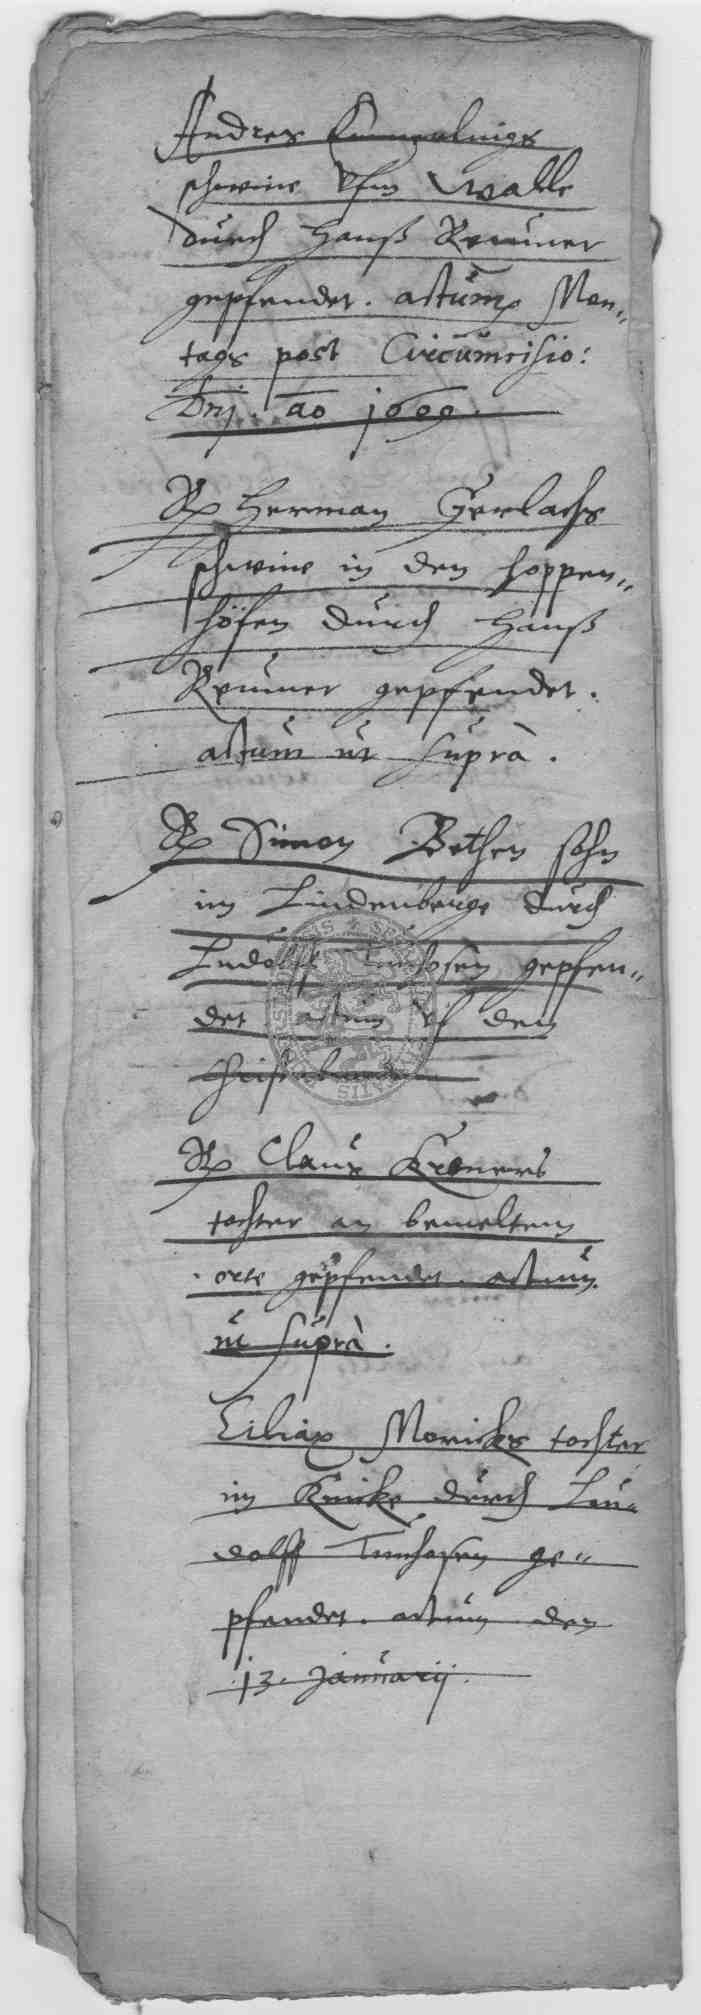 Andres
schweine Vfm Walle
durch Hanß Remmer
gepfendet. actum Mon„
tags post Circumcisio:
Dnj. ao 1609.
Herman Gerlachs
schweine in den hoppen„
höfen durch Hanß
Remmer gepfendet.
actum ut suprà.
Simon Bethen sohn
im Lindenberge durch
Ludolff gepfen„
det actum vf den
Claus Kröners
tochter an bemeltem
orte gepfendet. actum
ut suprà.
Moricks tochter
im Knicke durch Lu„
dolff ge„
pfendet. actum den
13. Januarij.